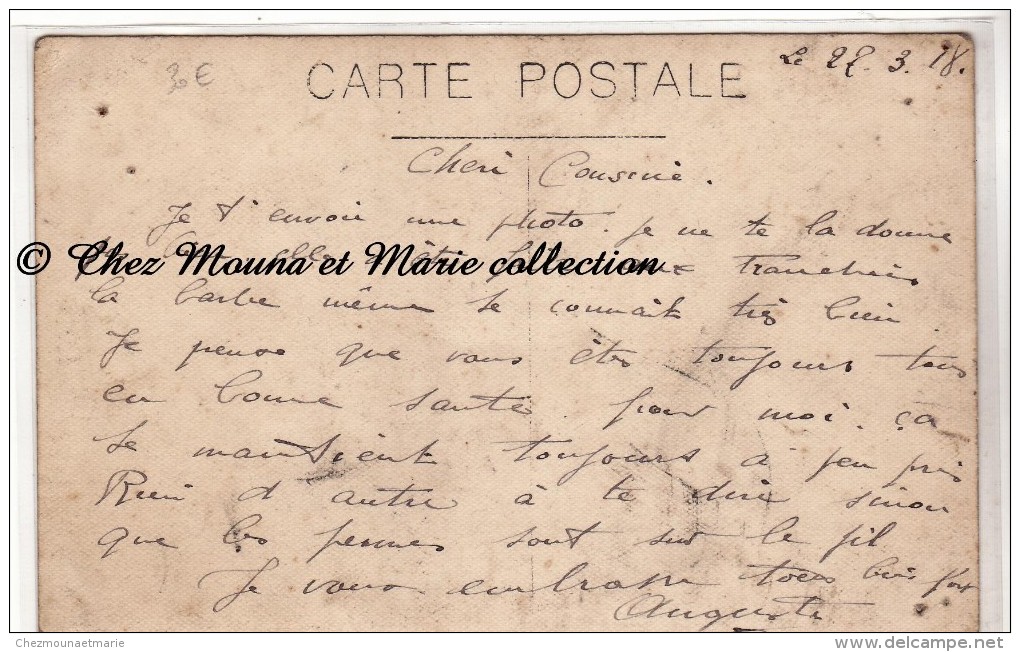 30 €
CARTE POSTALE
Le 22. 3. 18.
Cheri Cousine.
Je t'envoie une photo. je ne te la donne
© Chez Mouna et Marie collection
tranchées
la barbe même se connait très bien.
Je pense que vous êtes toujours tous
en bonne santé. pour moi. ça
se maintient toujours à peu près
Rien d'autre à te dire sinon
que les permes sont sur le fil
Je vous embrasse tous bien fort
Auguste
Chezmounaetmarie
www.delcampe.net